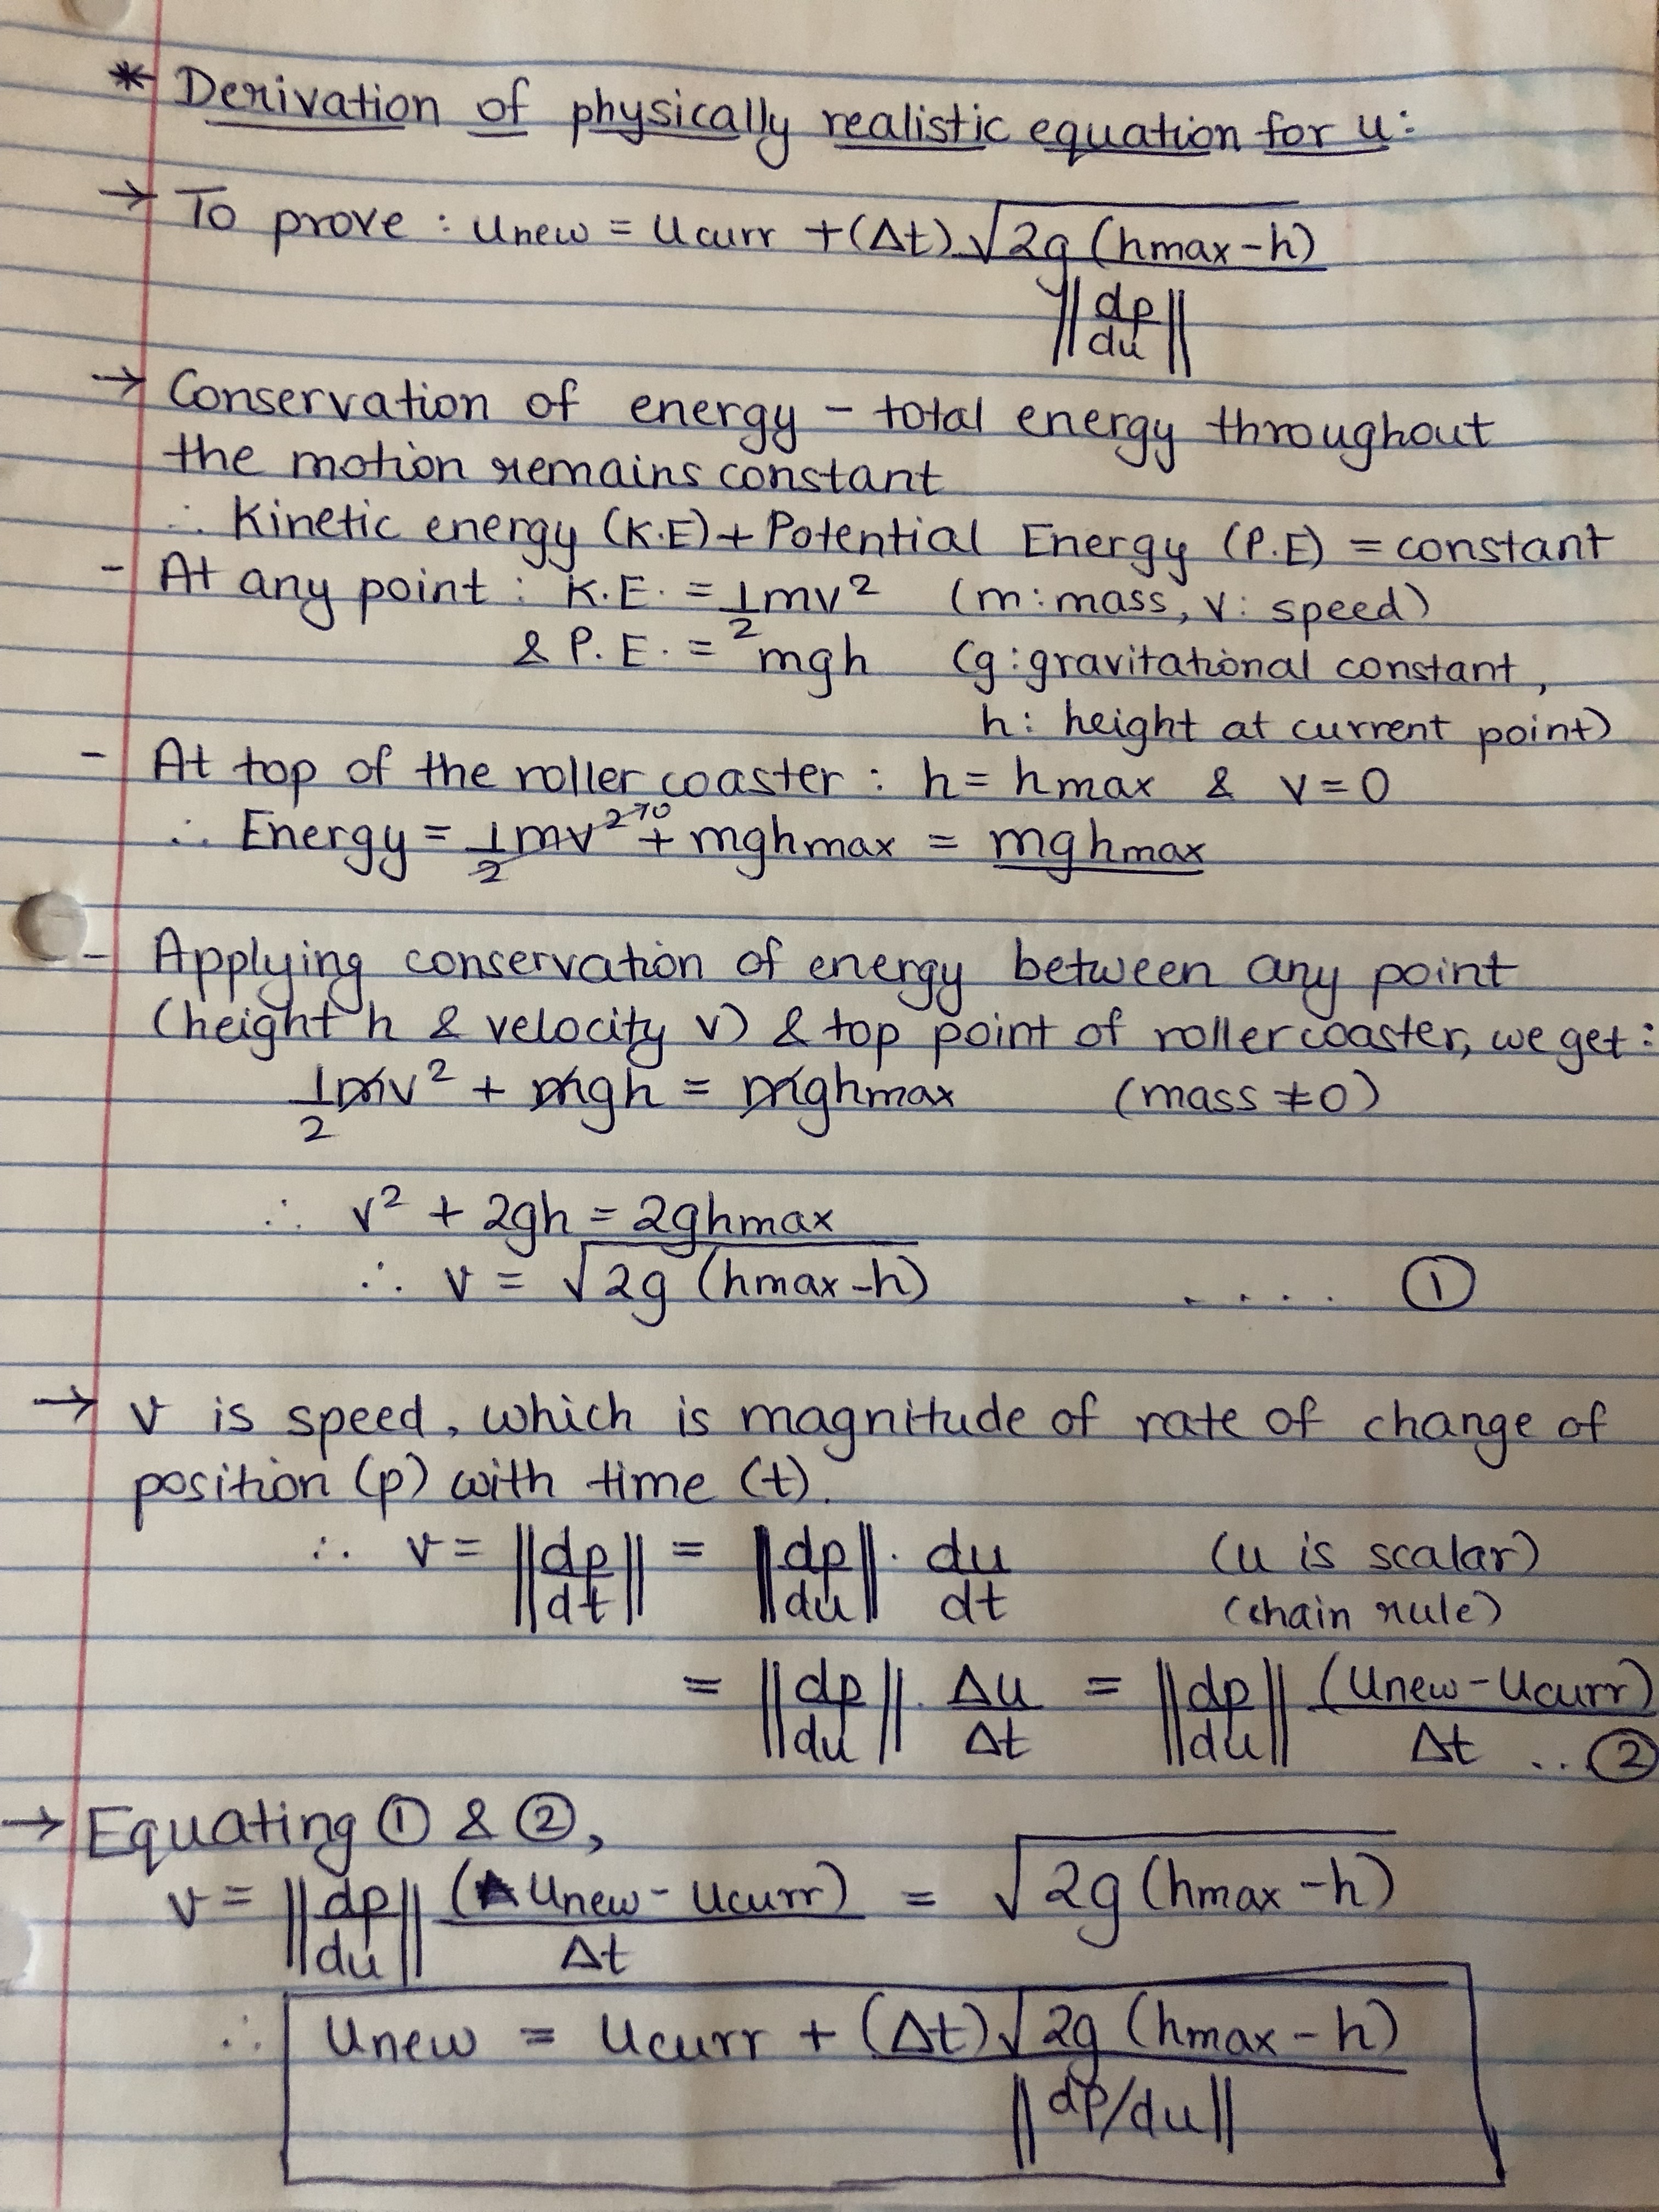 * Derivation of physically realistic equation for u:
→ To prove : unew = ucurr + (Δt) √2g (hmax - h)
||dp/du||
→ Conservation of energy - total energy throughout
the motion remains constant
∴ Kinetic energy (K.E) + Potential Energy (P.E) = constant
- At any point : K.E. = 1/2 mv² (m : mass, v : speed)
& P.E. = mgh (g : gravitational constant,
h : height at current point)
- At top of the roller coaster : h = hmax & v = 0
∴ Energy = 1/2 mv² →0 + mghmax = mghmax
- Applying conservation of energy between any point
(height h & velocity v) & top point of roller coaster, we get :
1/2 mv² + mgh = mghmax (mass ≠ 0)
∴ v² + 2gh = 2ghmax
∴ v = √2g (hmax - h) .... ①
→ v is speed, which is magnitude of rate of change of
position (p) with time (t).
∴ v = ||dp/dt|| = ||dp/du|| . du/dt (u is scalar)
(chain rule)
= ||dp/du|| . Δu/Δt = ||dp/du|| (unew - ucurr)/Δt ... ②
→ Equating ① & ②,
v = ||dp/du|| (unew - ucurr)/Δt = √2g (hmax - h)
∴ unew = ucurr + (Δt) √2g (hmax - h)
||dp/du||